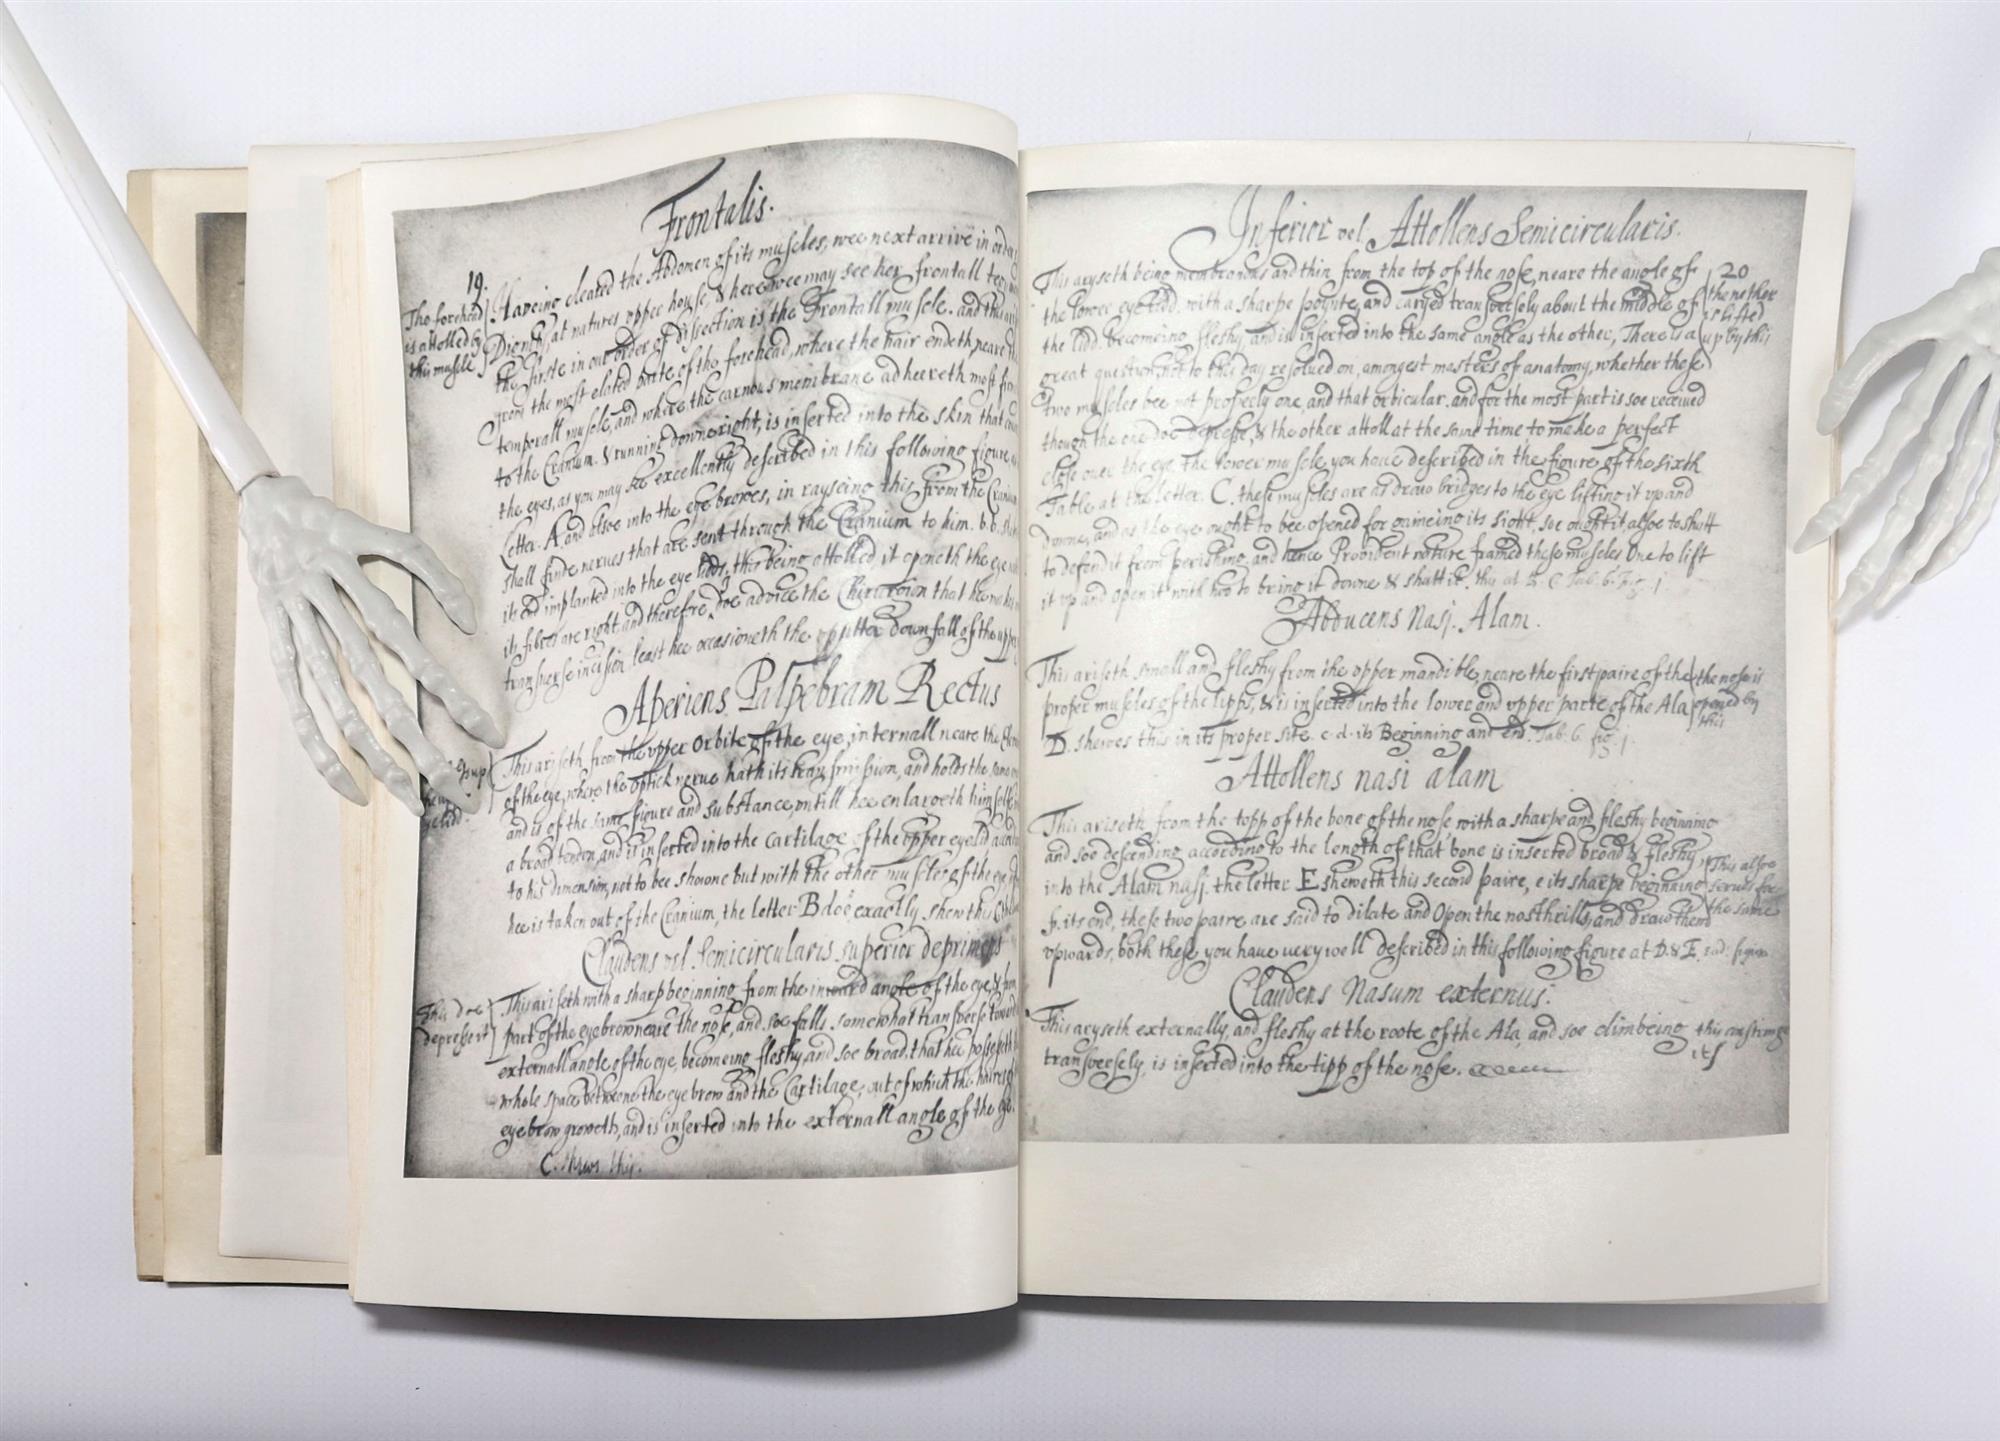 Frontalis.
19.
The forehead
is attolled by
this muscle
Haveing cleared the Abdomen of its muscles, wee next arrive in order
Dienght, at natures vpper house, & here wee may see her frontall
the firste in our order of dissection is the Frontall muscle. and this
from the most elated parte of the forehead, where the hair endeth, neare
temporall muscle, and where the carnous membrane adheereth most
to the Cranium. & running downe right, is inserted into the skin that
the eyes, as you may see excellently described in this following figure,
Letter. A. and alsoe into the eye browes, in rayseing this from the Cranium
shall finde nerves that are sent through the Cranium to him. b.b.
its end implanted into the eye lidds, this being attolled, it openeth the eye
its fibres are right and therefre doe advice the Chirurgion that hee
transverse incision least hee occasioneth the vtter downfall of the vpper
Aperiens Palpebram Rectus
This ariseth from the vpper Orbite of the eye, internall neare the
of the eye, where the optick nerve hath its transmission, and holds the same
and is of the same figure and substance, vntill hee enlargeth himselfe
a broad tendon, and is inserted into the cartilage of the vpper eyelid
to his dimension, not to bee showne but with the other muscles of the eye
hee is taken out of the Cranium, the letter B doe exactly shew this
Claudens vel Semicircularis superior deprimens
This doe
depresse it
This ariseth with a sharp beginning from the inward angle of the eye, &
part of the eyebrow neare the nose, and soe falls somewhat transverse toward
externall angle of the eye, becomeing fleshy, and soe broad, that hee possesseth
whole space betweene the eye brow and the Cartilage, out of which the haires of
eyebrow groweth, and is inserted into the externall angle of the eye.
C. shews this.
Inferior vel Attollens Semicircularis.
This aryseth being membranous and thin, from the top of the nose, neare the angle of
the lower eye lidd. with a sharpe poynte, and caryed transversely about the middle of
the lidd. becomeing fleshy and is inserted into the same angle as the other, There is a
great question, not to this day resolued on, amongest masters of anatomy, whether these
two muscles bee not properly one, and that orbicular. and for the most part is soe received
though the one doe depresse, & the other attoll at the same time to make a perfect
close over the eye. The lower muscle you haue described in the figure of the sixth
Table at the letter. C. these muscles are as draw bridges to the eye lifting it vp and
downe, and as the eye ought to bee opened for gaineing its sight, soe ought it alsoe to shutt
to defend it from perishing, and hence Provident nature framed these muscles One to lift
it vp and open it with, two to bring it downe & shutt it. thu at C Tab. 6. Fig. 1.
20
the nether
is lifted
up by this
Abducens Nasj. Alam.
This ariseth small and fleshy from the vpper mandible, neare the first paire of the
proper muscles of the lipps, & is inserted into the lower and vpper parte of the Ala
D. shewes this in its proper site. c. d. its Beginning and end. Tab. 6. fig. 1.
the nose is
opened by
this
Attollens nasi alam
This ariseth from the topp of the bone of the nose with a sharpe and fleshy begining
and soe descending according to the length of that bone is inserted broad & fleshy
into the Alam nasj. the letter E sheweth this second paire, e its sharpe beginning
f. its end, these two paire are said to dilate and Open the nosthrills, and draw them
vpwards, both these you have very well described in this following figure at D. & E.
This alsoe
serues for
the same
Claudens Nasum externus.
This aryseth externally, and fleshy at the roote of the Ala, and soe climbeing
transversely, is inserted into the tipp of the nose.
this constringe
its